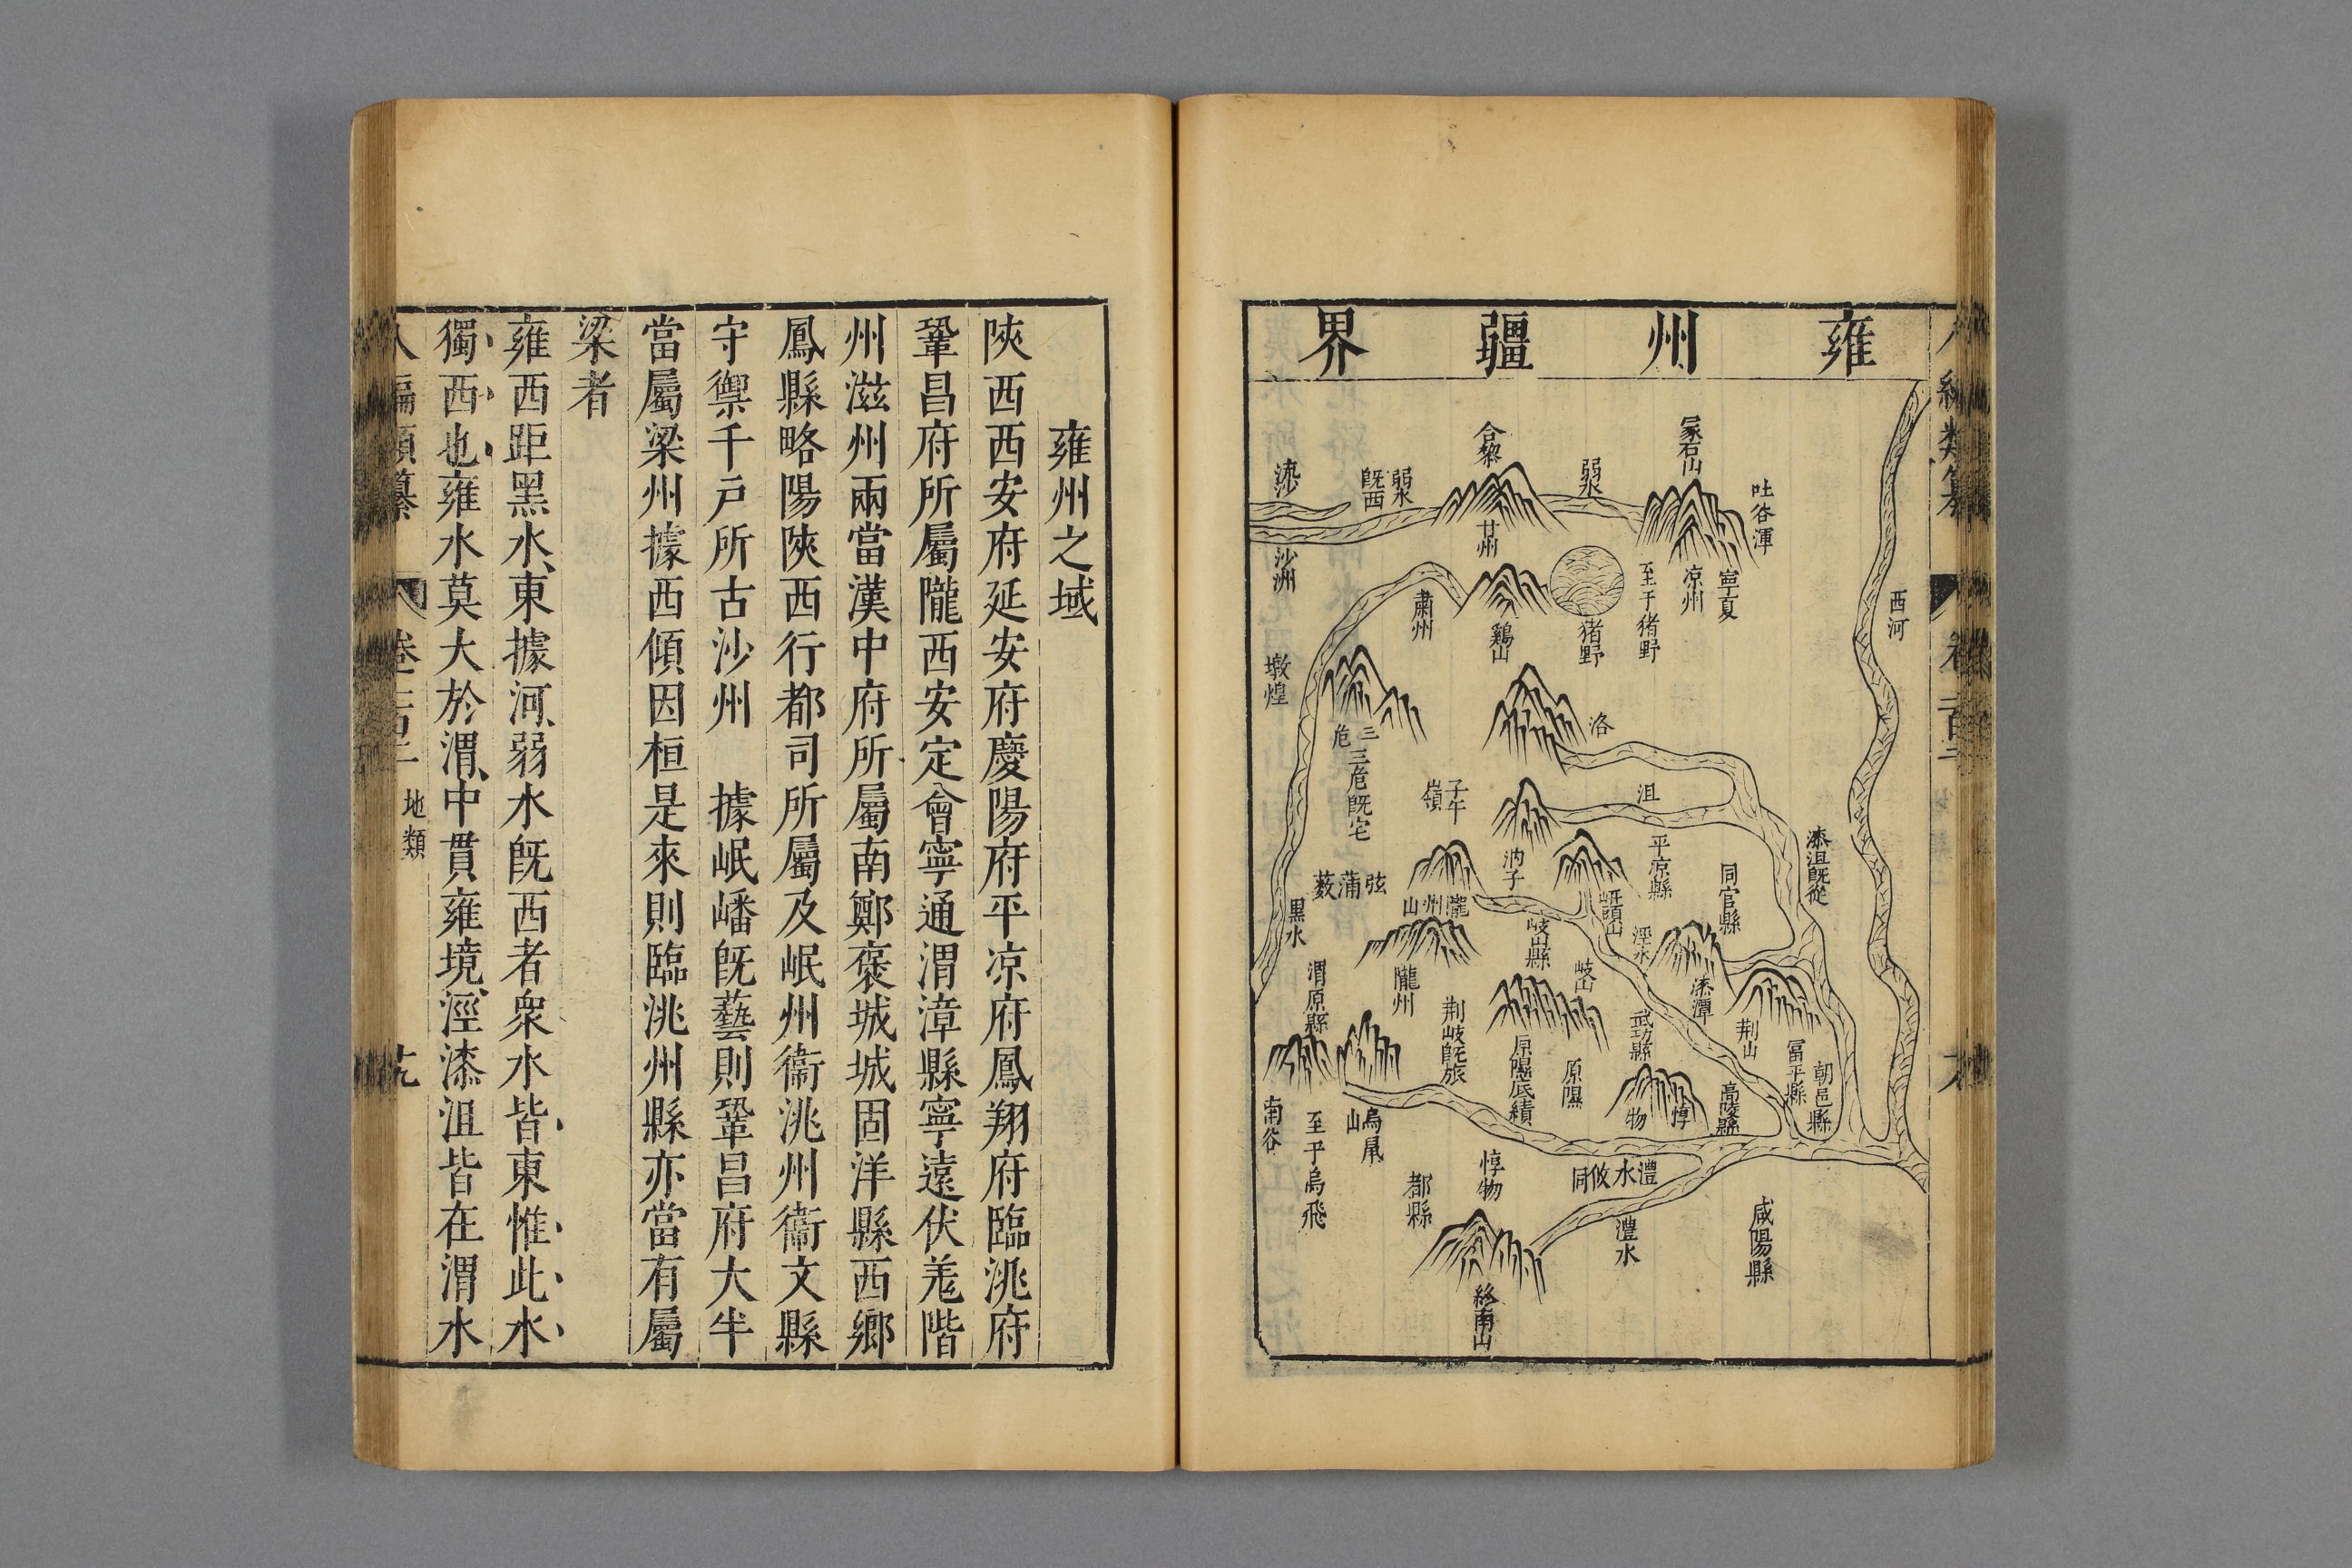 雍州疆界
西河
吐谷渾
冡石山
寧夏
凉州
至于猪野
猪野
弱水
合黎
甘州
雞山
弱水既西
流沙
沙洲
肅州
燉煌
三危
三危既宅
洛
沮
漆沮既從
子午嶺
平凉縣
同官縣
汭子
岍頭山
涇水
弦蒲薮
隴州山
黒水
岐山縣
岐山
隴州
漆潭
荆山
渭原縣
荆岐既旅
武功縣
原隰底績
原隰
冨平縣
朝邑縣
高陵縣
惇物
南谷
至于鳥飛
鳥鼠山
都縣
惇物
灃水攸同
灃水
咸陽縣
終南山
雍州之域
陝西西安府延安府慶陽府平凉府鳳翔府臨洮府
鞏昌府所屬隴西安定會寧通渭漳縣寧遠伏羗階
州滋州兩當漢中府所屬南鄭褒城城固洋縣西鄉
鳳縣略陽陝西行都司所屬及岷州衞洮州衞文縣
守禦千戸所古沙州　據岷嶓既藝則鞏昌府大半
當屬梁州據西傾因桓是來則臨洮州縣亦當有屬
梁者
雍西距黑水、東據河、弱水既西者衆水皆東惟此水
獨西也雍水莫大於渭、中貫雍境、涇漆沮皆在渭水
八編類纂
地類